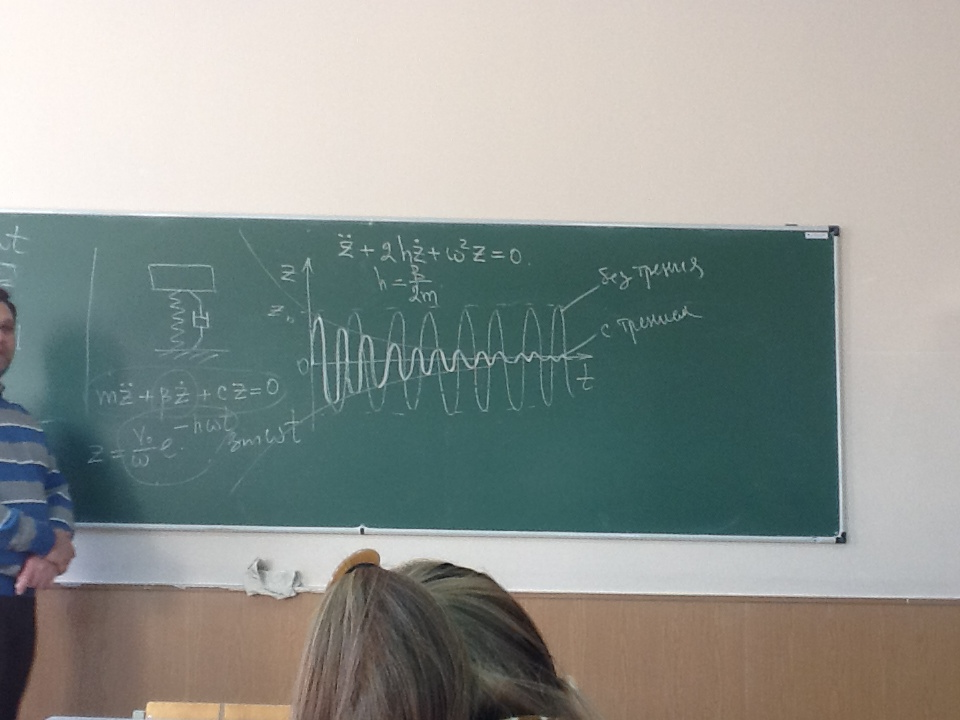 ωt
z̈ + 2hż + ω²z = 0.
h = β/2m
z
z₀
0
t
без трения
с трением
mz̈ + βż + cz = 0
z = V₀/ω e^(-hωt) sin ωt